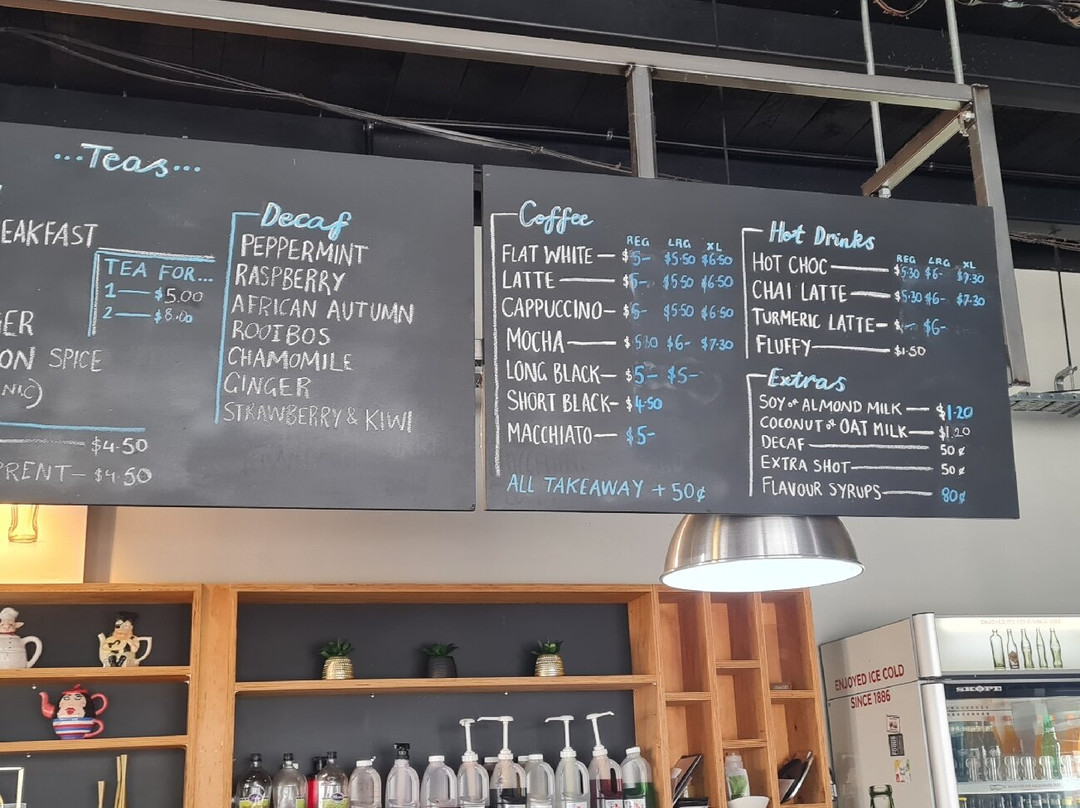 ...Teas...
EAKFAST
TEA FOR...
1 — $5.00
2 — $8.00
GER
ON SPICE
NIC)
$4.50
PRENT — $4.50
Decaf
PEPPERMINT
RASPBERRY
AFRICAN AUTUMN
ROOIBOS
CHAMOMILE
GINGER
STRAWBERRY & KIWI
Coffee
REG LRG XL
FLAT WHITE — $5- $5.50 $6.50
LATTE — $5- $5.50 $6.50
CAPPUCCINO — $5- $5.50 $6.50
MOCHA — $5.30 $6- $7.30
LONG BLACK — $5- $5-
SHORT BLACK - $4.50
MACCHIATO — $5-
ALL TAKEAWAY + 50¢
Hot Drinks
REG LRG XL
HOT CHOC — $5.30 $6- $7.30
CHAI LATTE — $5.30 $6- $7.30
TURMERIC LATTE - $6-
FLUFFY — $1.50
Extras
SOY or ALMOND MILK — $1.20
COCONUT or OAT MILK — $1.20
DECAF — 50¢
EXTRA SHOT — 50¢
FLAVOUR SYRUPS — 80¢
ENJOYED ICE COLD
SINCE 1886
ENJOYED ICE COLD SINCE 1886
SKOPE